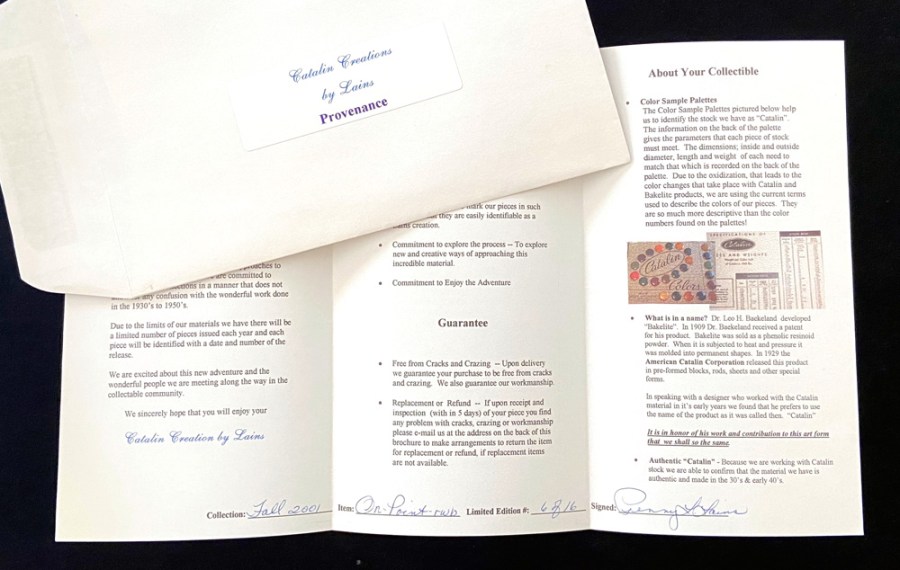 Catalin Creations
by Lains
Provenance
are committed to
in a manner that does not
any confusion with the wonderful work done
in the 1930's to 1950's.
Due to the limits of our materials we have there will be
a limited number of pieces issued each year and each
piece will be identified with a date and number of the
release.
We are excited about this new adventure and the
wonderful people we are meeting along the way in the
collectable community.
We sincerely hope that you will enjoy your
Catalin Creation by Lains
Collection: Fall 2001
mark our pieces in such
they are easily identifiable as a
creation.
• Commitment to explore the process -- To explore
new and creative ways of approaching this
incredible material.
• Commitment to Enjoy the Adventure
Guarantee
• Free from Cracks and Crazing -- Upon delivery
we guarantee your purchase to be free from cracks
and crazing. We also guarantee our workmanship.
• Replacement or Refund -- If upon receipt and
inspection (with in 5 days) of your piece you find
any problem with cracks, crazing or workmanship
please e-mail us at the address on the back of this
brochure to make arrangements to return the item
for replacement or refund, if replacement items
are not available.
Item: On-Point-rwb Limited Edition #: 6 of 16
About Your Collectible
• Color Sample Palettes
The Color Sample Palettes pictured below help
us to identify the stock we have as "Catalin".
The information on the back of the palette
gives the parameters that each piece of stock
must meet. The dimensions; inside and outside
diameter, length and weight of each need to
match that which is recorded on the back of the
palette. Due to the osidization, that leads to the
color changes that take place with Catalin and
Bakelite products, we are using the current terms
used to describe the colors of our pieces. They
are so much more descriptive than the color
numbers found on the palettes!
Catalin
Colors
SPECIFICATIONS OF
Catalin
• What is in a name? Dr. Leo H. Baekeland developed
"Bakelite". In 1909 Dr. Baekeland received a patent
for his product. Bakelite was sold as a phenolic resinoid
powder. When it is subjected to heat and pressure it
was molded into permanent shapes. In 1929 the
American Catalin Corporation released this product
in pre-formed blocks, rods, sheets and other special
forms.
In speaking with a designer who worked with the Catalin
material in it's early years we found that he prefers to use
the name of the product as it was called then. "Catalin"
It is in honor of his work and contribution to this art form
that we shall so the same.
• Authentic "Catalin" - Because we are working with Catalin
stock we are able to confirm that the material we have is
authentic and made in the 30's & early 40's.
Signed: Penny S Lains